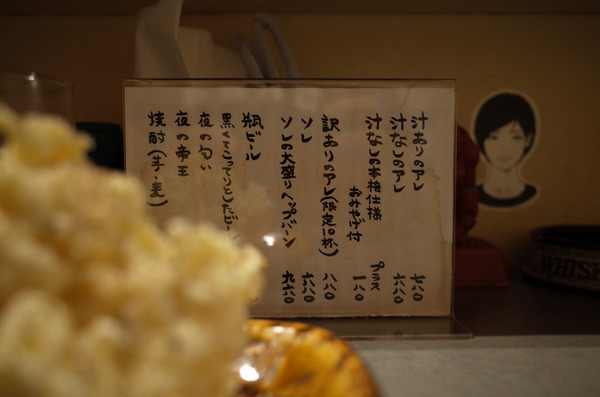 汁ありのアレ 六八〇
汁なしのアレ 六八〇
汁なしの本格仕様 プラス
おみやげ付 一八〇
訳ありのアレ(限定10杯) 八八〇
ソレ 六八〇
ソレの大盛りヘップバーン 九六〇
瓶ビール
黒くてこってりとしたビ
夜の匂い
夜の帝王
焼酎(芋・麦)
WHISK